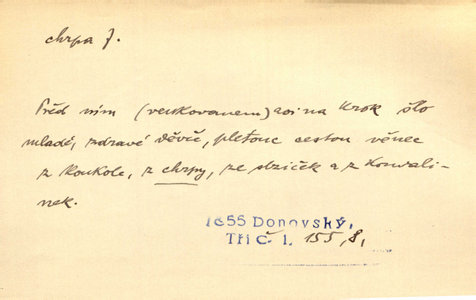 chrpa f.
Před ním (venkovanem) asi na krok šlo
mladé, zdravé děvče, pletouc cestou věnec
z koukole, z chrpy, ze slziček a z konvali-
nek.
1855 Donovský,
Tři č. 1. 155, 8,